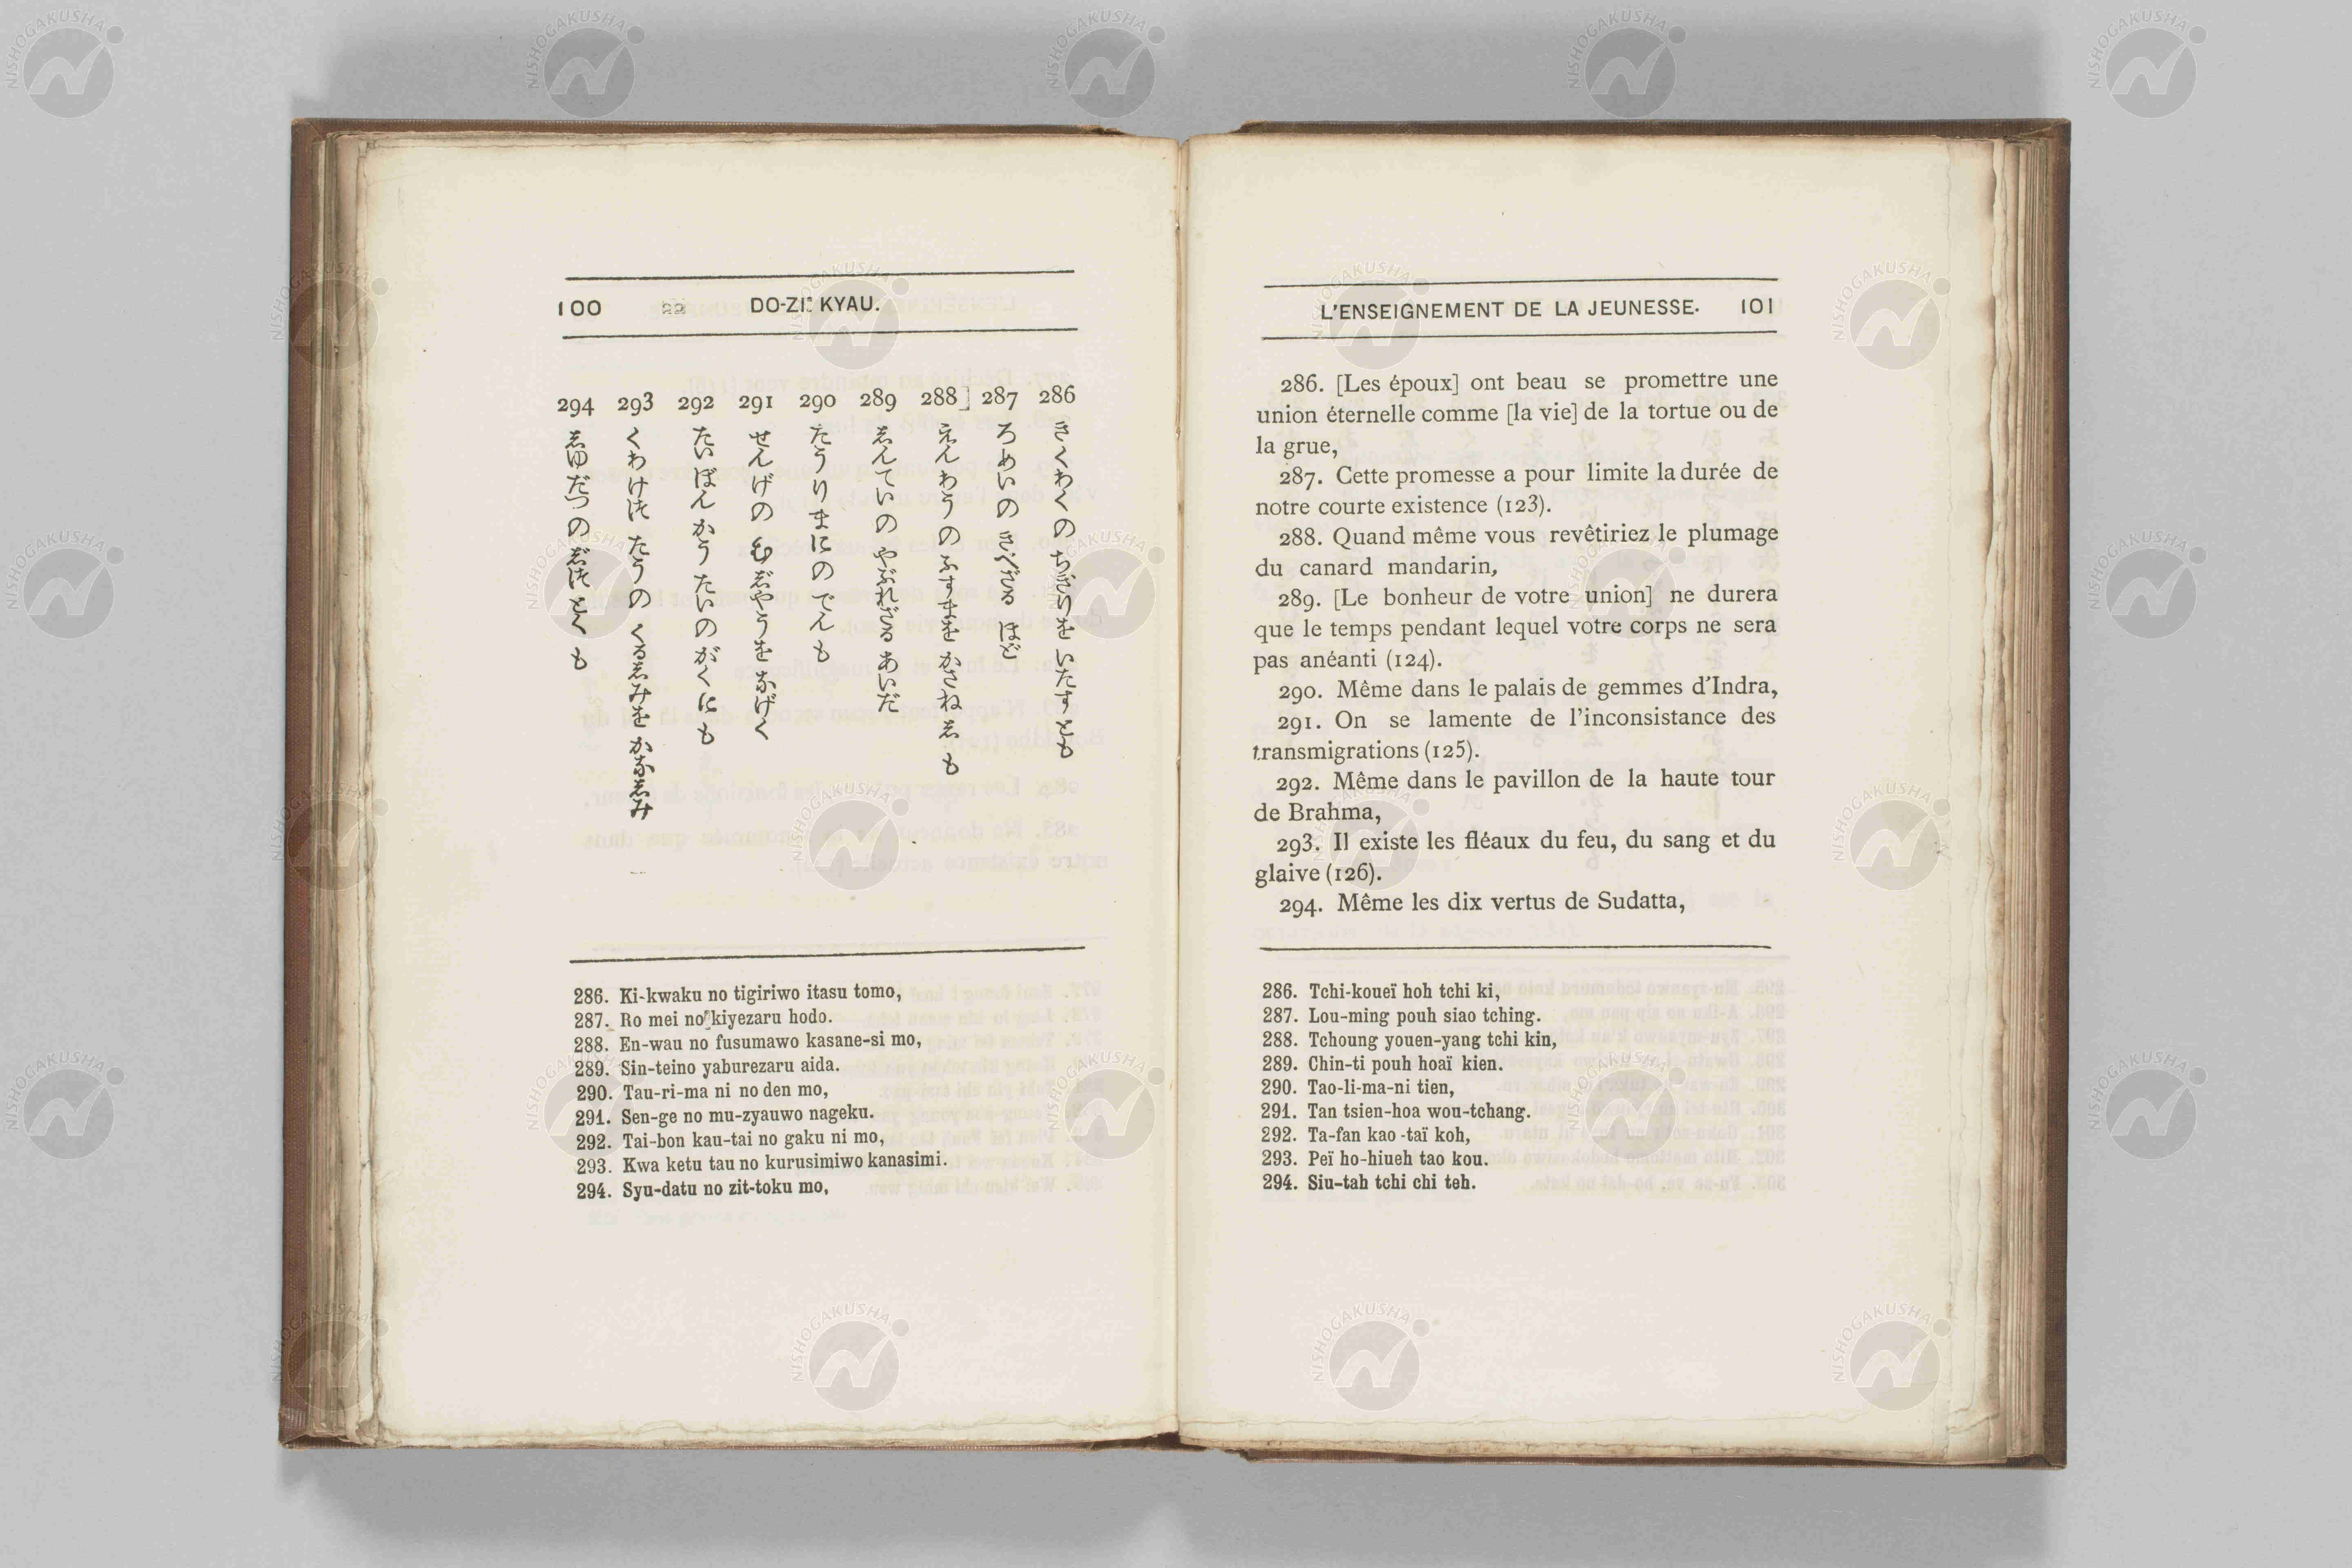 100 DO-ZI KYAU.
286 きくわくの ちぎりを いたすとも
287 ろめいの きべざる ほど
288 えんわうの ふすまを かさねしも
289 しんていの やぶれざる あいだ
290 たうりまにのでんも
291 せんげの むじやうを なげく
292 たいぼんかうたいのがくにも
293 くわけつ たうの くるしみを かなしみ
294 しゆだつの じつとくも
286. Ki-kwaku no tigiriwo itasu tomo,
287. Ro mei no kiyezaru hodo.
288. En-wau no fusumawo kasane-si mo,
289. Sin-teino yaburezaru aida.
290. Tau-ri-ma ni no den mo,
291. Sen-ge no mu-zyauwo nageku.
292. Tai-bon kau-tai no gaku ni mo,
293. Kwa ketu tau no kurusimiwo kanasimi.
294. Syu-datu no zit-toku mo,
L'ENSEIGNEMENT DE LA JEUNESSE. 101
286. [Les époux] ont beau se promettre une
union éternelle comme [la vie] de la tortue ou de
la grue,
287. Cette promesse a pour limite la durée de
notre courte existence (123).
288. Quand même vous revêtiriez le plumage
du canard mandarin,
289. [Le bonheur de votre union] ne durera
que le temps pendant lequel votre corps ne sera
pas anéanti (124).
290. Même dans le palais de gemmes d'Indra,
291. On se lamente de l'inconsistance des
transmigrations (125).
292. Même dans le pavillon de la haute tour
de Brahma,
293. Il existe les fléaux du feu, du sang et du
glaive (126).
294. Même les dix vertus de Sudatta,
286. Tchi-koueï hoh tchi ki,
287. Lou-ming pouh siao tching.
288. Tchoung youen-yang tchi kin,
289. Chin-ti pouh hoaï kien.
290. Tao-li-ma-ni tien,
291. Tan tsien-hoa wou-tchang.
292. Ta-fan kao-taï koh,
293. Peï ho-hiueh tao kou.
294. Siu-tah tchi chi teh.
NISHOGAKUSHA